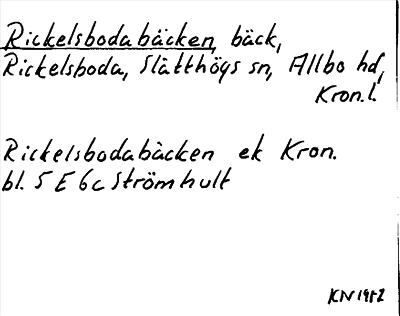 Rickelsbodabäcken, bäck,
Rickelsboda, Slätthögs sn, Allbo hd,
Kron.l.
Rickelsbodabäcken ek Kron.
bl. 5 E 6c Strömhult
KN 1982